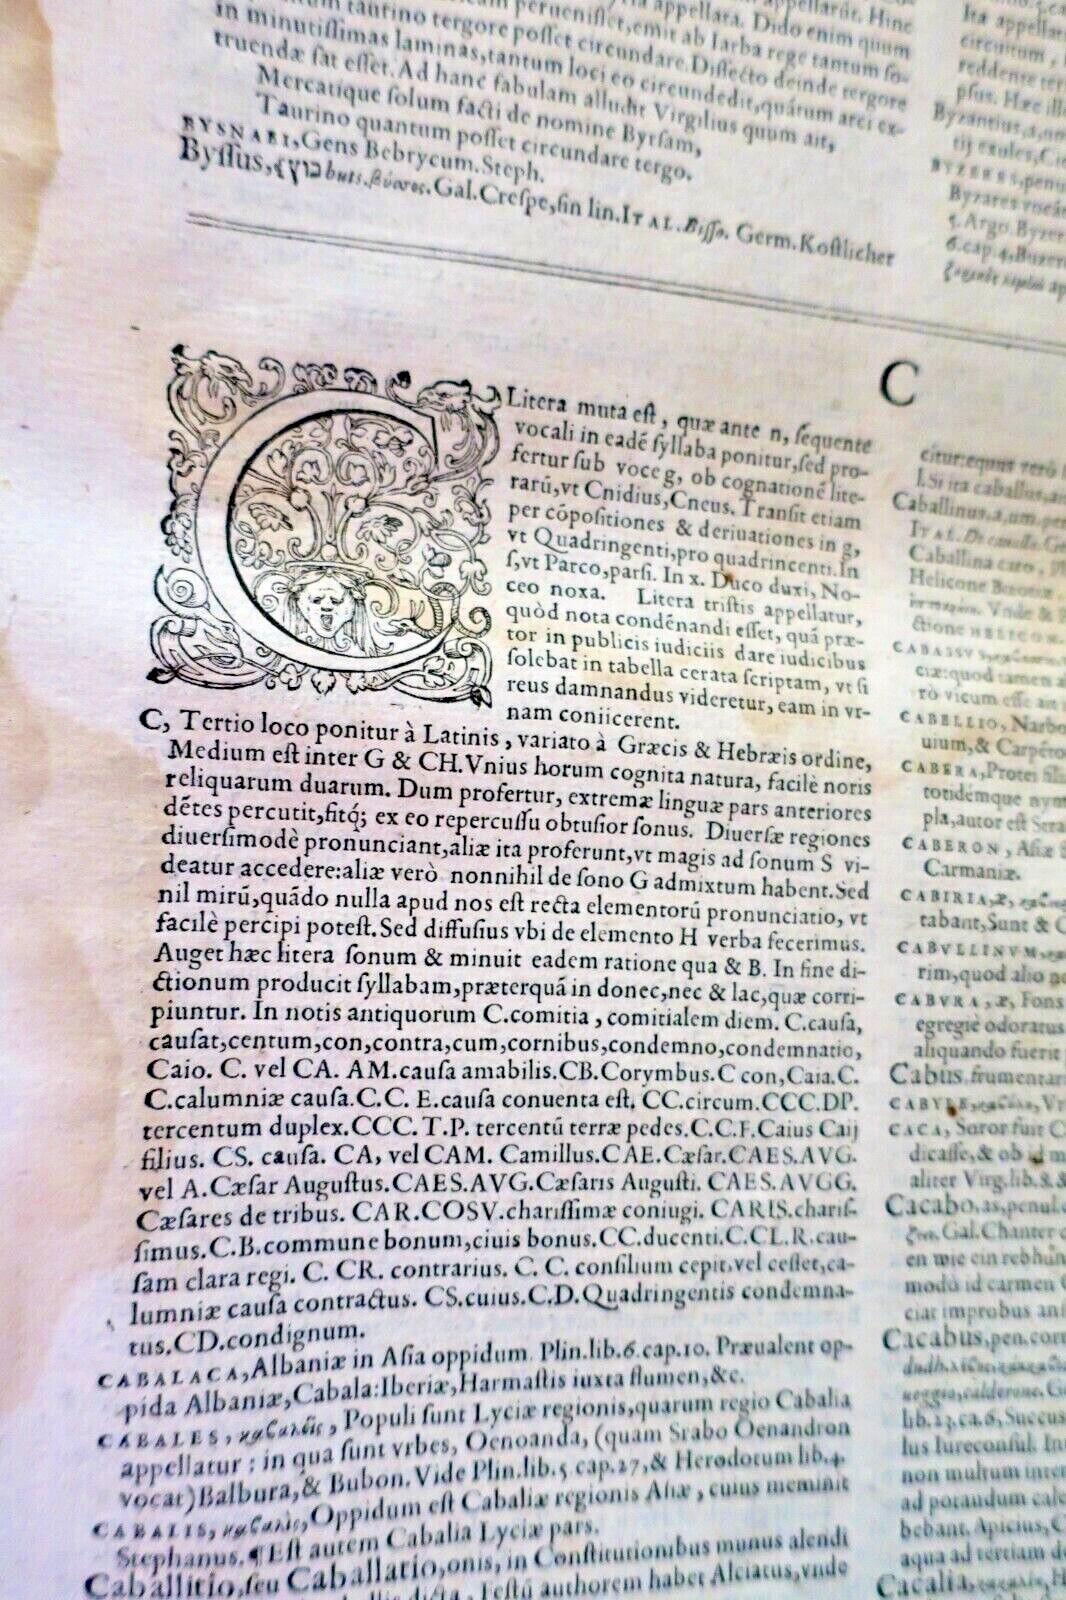 appellata. Dido enim quum
perueniſſet, emit ab Iarba rege tantum ſo-
taurino tergore poſſet circundare. Diſſecto deinde tergore
in minutiſſimas laminas, tantum loci eo circundedit, quátum arci ex-
truendæ ſat eſſet. Ad hanc fabulam alludit Virgilius quum ait,
Mercatique ſolum facti de nomine Byrſam,
Taurino quantum poſſet circundare tergo.
BYSNABI, Gens Bebrycum. Steph.
Byſſus, בוץ buts. βύσσος. Gal. Creſpe, fin lin. ITAL. Biſſo. Germ. Koſtlicher
C
Litera muta eſt, quæ ante n, ſequente
vocali in eadē ſyllaba ponitur, ſed pro-
fertur ſub voce g, ob cognationē lite-
rarū, vt Cnidius, Cneus. Tranſit etiam
per cōpoſitiones & deriuationes in g,
vt Quadringenti, pro quadrincenti. In
ſ, vt Parco, parſi. In x. Duco duxi, No-
ceo noxa. Litera triſtis appellatur,
quòd nota condēnandi eſſet, quā præ-
tor in publicis iudiciis dare iudicibus
ſolebat in tabella cerata ſcriptam, vt ſi
reus damnandus videretur, eam in vr-
nam coniicerent.
C, Tertio loco ponitur à Latinis, variato à Græcis & Hebræis ordine,
Medium eſt inter G & CH. Vnius horum cognita natura, facilè noris
reliquarum duarum. Dum profertur, extremæ linguæ pars anteriores
dētes percutit, fitq́; ex eo repercuſſu obtuſior ſonus. Diuerſæ regiones
diuerſimodè pronunciant, aliæ ita proferunt, vt magis ad ſonum S vi-
deatur accedere: aliæ verò nonnihil de ſono G admixtum habent. Sed
nil mirū, quādo nulla apud nos eſt recta elementorū pronunciatio, vt
facilè percipi poteſt. Sed diffuſius vbi de elemento H verba fecerimus.
Auget hæc litera ſonum & minuit eadem ratione qua & B. In fine di-
ctionum producit ſyllabam, præterquā in donec, nec & lac, quæ corri-
piuntur. In notis antiquorum C. comitia, comitialem diem. C. cauſa,
cauſat, centum, con, contra, cum, cornibus, condemno, condemnatio,
Caio. C. vel CA. AM. cauſa amabilis. CB. Corymbus. C con, Caia. C.
C. calumniæ cauſa. C. C. E. cauſa conuenta eſt. CC. circum. CCC. DP.
tercentum duplex. CCC. T. P. tercentū terræ pedes. C. C. F. Caius Caij
filius. CS. cauſa. CA, vel CAM. Camillus. CAE. Cæſar. CAES. AVG.
vel A. Cæſar Auguſtus. CAES. AVG. Cæſaris Auguſti. CAES. AVGG.
Cæſares de tribus. CAR. COSV. chariſſimæ coniugi. CARIS. chariſ-
ſimus. C. B. commune bonum, ciuis bonus. CC. ducenti. C. CL. R. cau-
ſam clara regi. C. CR. contrarius. C. C. conſilium cepit, vel ceſſet, ca-
lumniæ cauſa contractus. CS. cuius. C. D. Quadringentis condemna-
tus. CD. condignum.
CABALACA, Albaniæ in Aſia oppidum. Plin. lib. 6. cap. 10. Præualent op-
pida Albaniæ, Cabala: Iberiæ, Harmaſtis iuxta flumen, &c.
CABALES, Populi ſunt Lyciæ regionis, quarum regio Cabalia
appellatur: in qua ſunt vrbes, Oenoanda, (quam Srabo Oenandron
vocat) Balbura, & Bubon. Vide Plin. lib. 5 cap. 27, & Herodotum lib. 4.
CABALIS, Oppidum eſt Cabaliæ regionis Aſiæ, cuius meminit
Stephanus. ¶ Eſt autem Cabalia Lyciæ pars.
Caballitio, ſeu Caballatio, onis, in Conſtitutionibus munus alendi
dicta, Feſtū authorem habet Alciatus, vnde
Ita appellat
circuitum,
reddente ter
pſus. Hæc
Byzantius, a, um
tij exules, Ci
BYZERES, penu
Byzares
5. Argo. Byzer
6. cap. 4, Buzer
C
citur: equus verò
l. Si ita caballus, an
Caballinus, a, um. pen
ITAL. De cauallo. Ge
Caballina caro,
Helicone
Vnde &
ctione HELICON.
CABASSVS,
ciæ: quod tamen a
rò vicum eſſe ait
CABELLIO, Narbo
uium, & Carpéto
CABERA, Protei fili
totidémque nym
pla, autor eſt Sera
CABERON, Aſiæ
Carmaniæ.
CABIRIA, æ,
tabant, Sunt &
CABVLLINVM,
rim, quod alio no
CABVRA, æ, Fons
egregiè odoratus
aliquando fuerit
Cabus frumentar
CABYLE, Vr
CACA, Soror fuit C
dicaſſe, & ob id m
aliter Virg. lib. 8.
Cacabo, as, penul.
Gal. Chanter
en wie ein rebhůn
modū id carmen
ciat improbus
Cacabus, pen. corr
calderone. G
lib. 23. ca. 6, Succus
lus Iureconſul. In
non multum inter
ad potandum calc
bebant. Apicius, C
aqua ad tertiam
Cacalia,